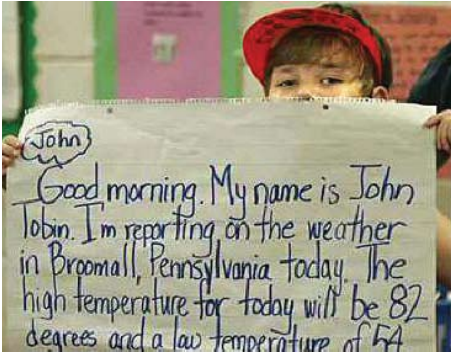 John
Good morning. My name is John
Tobin. I'm reporting on the weather
in Broomall, Pennsylvania today. The
high temperature for today will be 82
degrees and a low temperature of 54